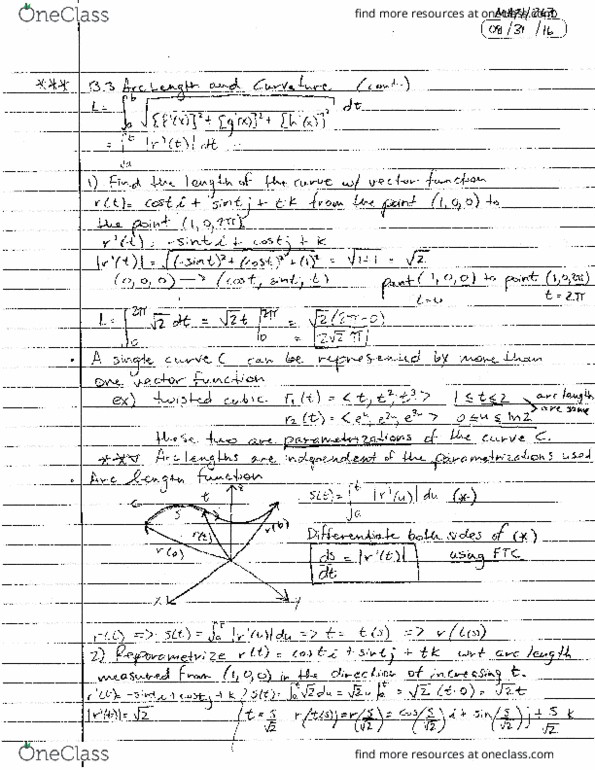 OneClass
find more resources at oneclass.com
08/31/16
*** 13.3 Arc Length and Curvature (cont.)
L = ∫_a^b √([f'(x)]² + [g'(x)]² + [h'(x)]²) dt
= ∫_a^b |r'(t)| dt
1) Find the length of the curve w/ vector function
r(t) = cost i + sint j + t k from the point (1,0,0) to
the point (1,0,2π)
r'(t) = -sint i + cost j + k
|r'(t)| = √((-sint)² + (cost)² + (1)²) = √1+1 = √2
(0,0,0) → (cost, sint, t) point (1,0,0) to point (1,0,2π)
t = 2π
L = ∫_0^2π √2 dt = √2 t |_0^2π = √2 (2π-0)
= 2√2 π
• A single curve C can be represented by more than
one vector function
ex) twisted cubic r₁(t) = <t, t², t³> 1 ≤ t ≤ 2 arc length
r₂(t) = <e^u, e^2u, e^3u> 0 ≤ u ≤ ln2 are same
these two are parametrizations of the curve C.
*** Arc lengths are independent of the parametrizations used
• Arc length function
z
C
s
t
r(t)
r(b)
x
y
s(t) = ∫_a^t |r'(u)| du (*)
Differentiate both sides of (*)
ds/dt = |r'(t)| using FTC
r(t) => s(t) = ∫_a^t |r'(u)| du => t = t(s) => r(t(s))
2) Reparametrize r(t) = cost i + sint j + tk wrt arc length
measured from (1,0,0) in the direction of increasing t.
r'(t) = -sint i + cost j + k s(t) = ∫_0^t √2 du = √2 u |_0^t = √2 (t-0) = √2 t
|r'(t)| = √2 t = s/√2 r(t(s)) = r(s/√2) = cos(s/√2) i + sin(s/√2) j + s/√2 k
OneClass
find more resources at oneclass.com